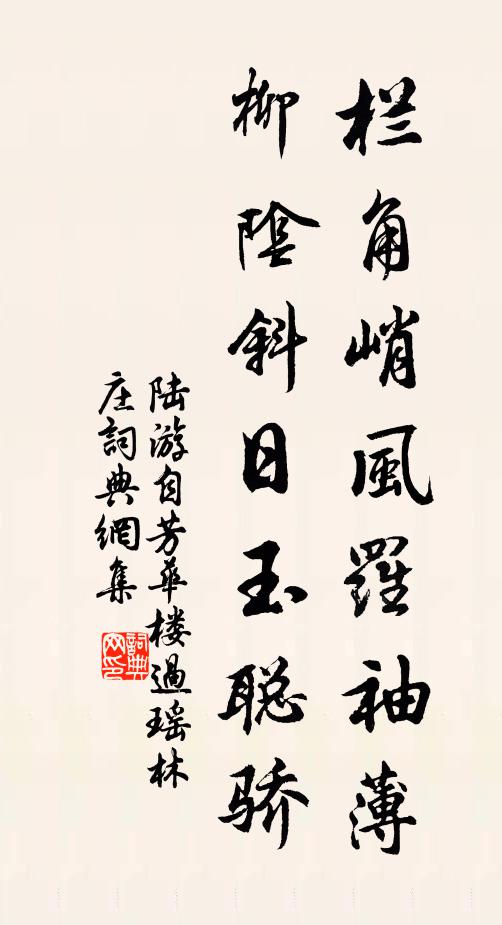 栏角峭風羅袖薄
柳陰斜日玉聪骄
陆游自芳華楼過瑶林
庄詞典網集